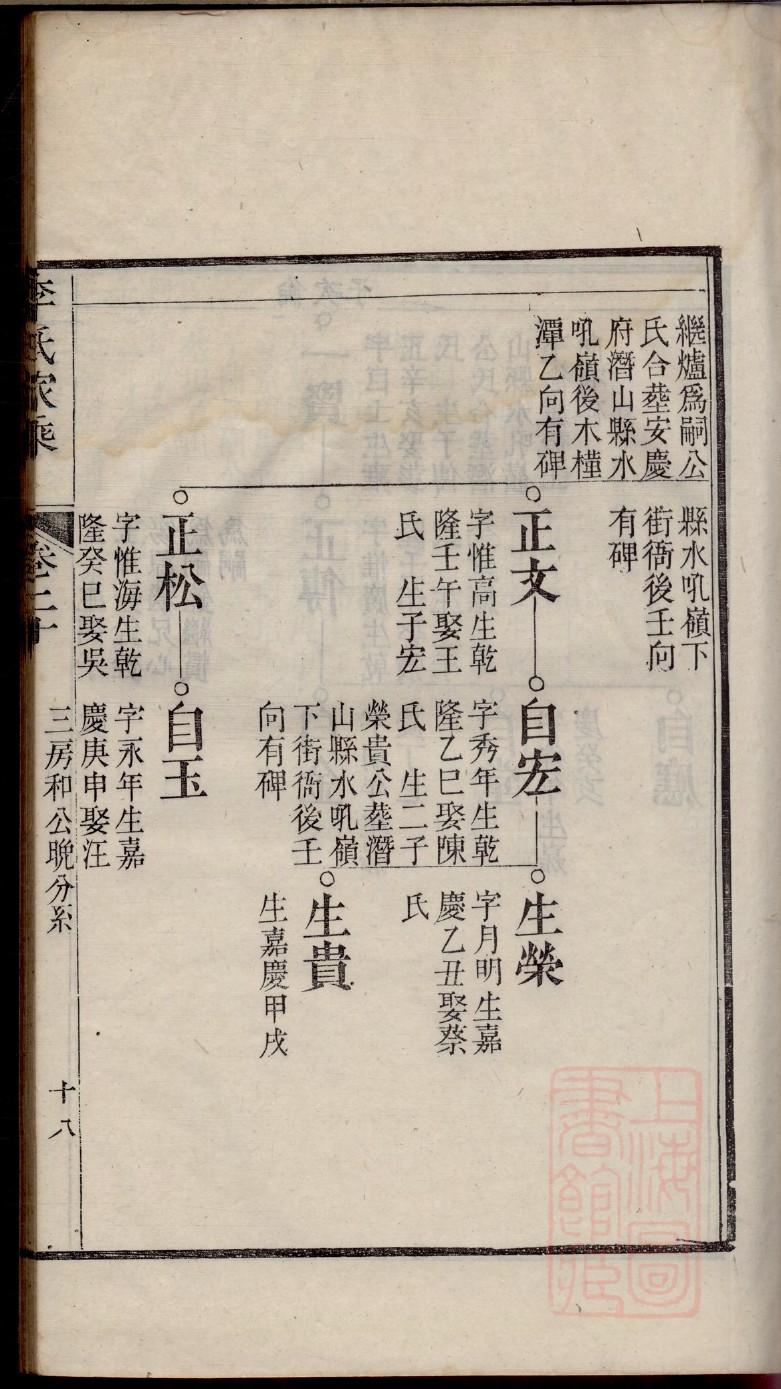 繼爐爲嗣公
氏合塟安慶
府潛山縣水
吼嶺後木橦
潭乙向有碑
縣水吼嶺下
街衙後壬向
有碑
正文
字惟高生乾
隆壬午娶王
氏 生子宏
自宏
字秀年生乾
隆乙巳娶陳
氏 生二子
榮貴公塟潛
山縣水吼嶺
下街衙後壬
向有碑
生榮
字月明生嘉
慶乙丑娶蔡
氏
生貴
生嘉慶甲戌
正松
字惟海生乾
隆癸巳娶吳
自玉
字永年生嘉
慶庚申娶汪
李氏家乘
卷二十
三房和公晚分系
十八
上海圖
書館藏